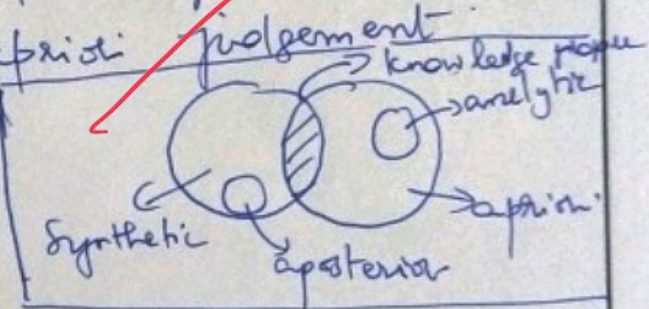 priori judgement
knowledge proper
analytic
apriori.
Synthetic
aposterior